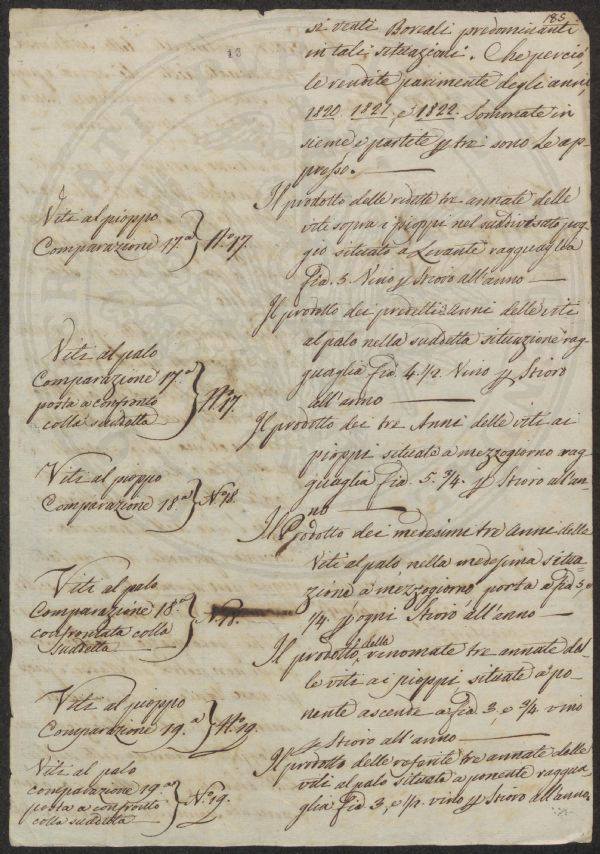 185
13
si venti Boreali predominanti
in tali situazioni. Che perciò
le vendite parimente degli anni
1820. 1821, e 1822. Sommate in
sieme e partite p tre sono Le ap-
presso.
Viti al pioppo
Comparazione 17.a } N.o 17.
Il prodotto delle ridette tre annate delle
viti sopra i pioppi nel suddivisato pog-
gio situato a Levante ragguaglia
fia. 5. Vino p Stioro all'anno
Viti al palo
Comparazione 17.a
posta a confronto
colla suddetta } N.o 17.
Il prodotto dei predetti Anni delle viti
al palo nella suddetta situazione rag-
guaglia fia 4. 1/2. Vino p Stioro
all'anno
Viti al pioppo
Comparazione 18.a } N.o 18.
Il prodotto dei tre Anni delle viti ai
pioppi situate a mezzogiorno rag-
guaglia fia. 5. 3/4. p Stioro all'an-
no
Viti al palo
Comparazione 18.a
confrontata colla
suddetta } N. 18.
Il Prodotto dei medesimi tre anni delle
Viti al palo nella medesima situa-
zione a mezzogiorno porta a fia 5.
1/4. p ogni Stioro all'anno
Viti al pioppo
Comparazione 19.a } N.o 19.
Il prodotto della rinomate tre annate del-
le viti ai pioppi situate a po-
nente ascende a fia 3, e 3/4 vino
p Stioro all'anno
Viti al palo
comparazione 19.a
posta a confronto
colla suddetta } N.o 19.
Il prodotto delle referite tre annate delle
viti al palo situate a ponente raggua-
glia fia 3, e 1/2. vino p Stioro all'anno